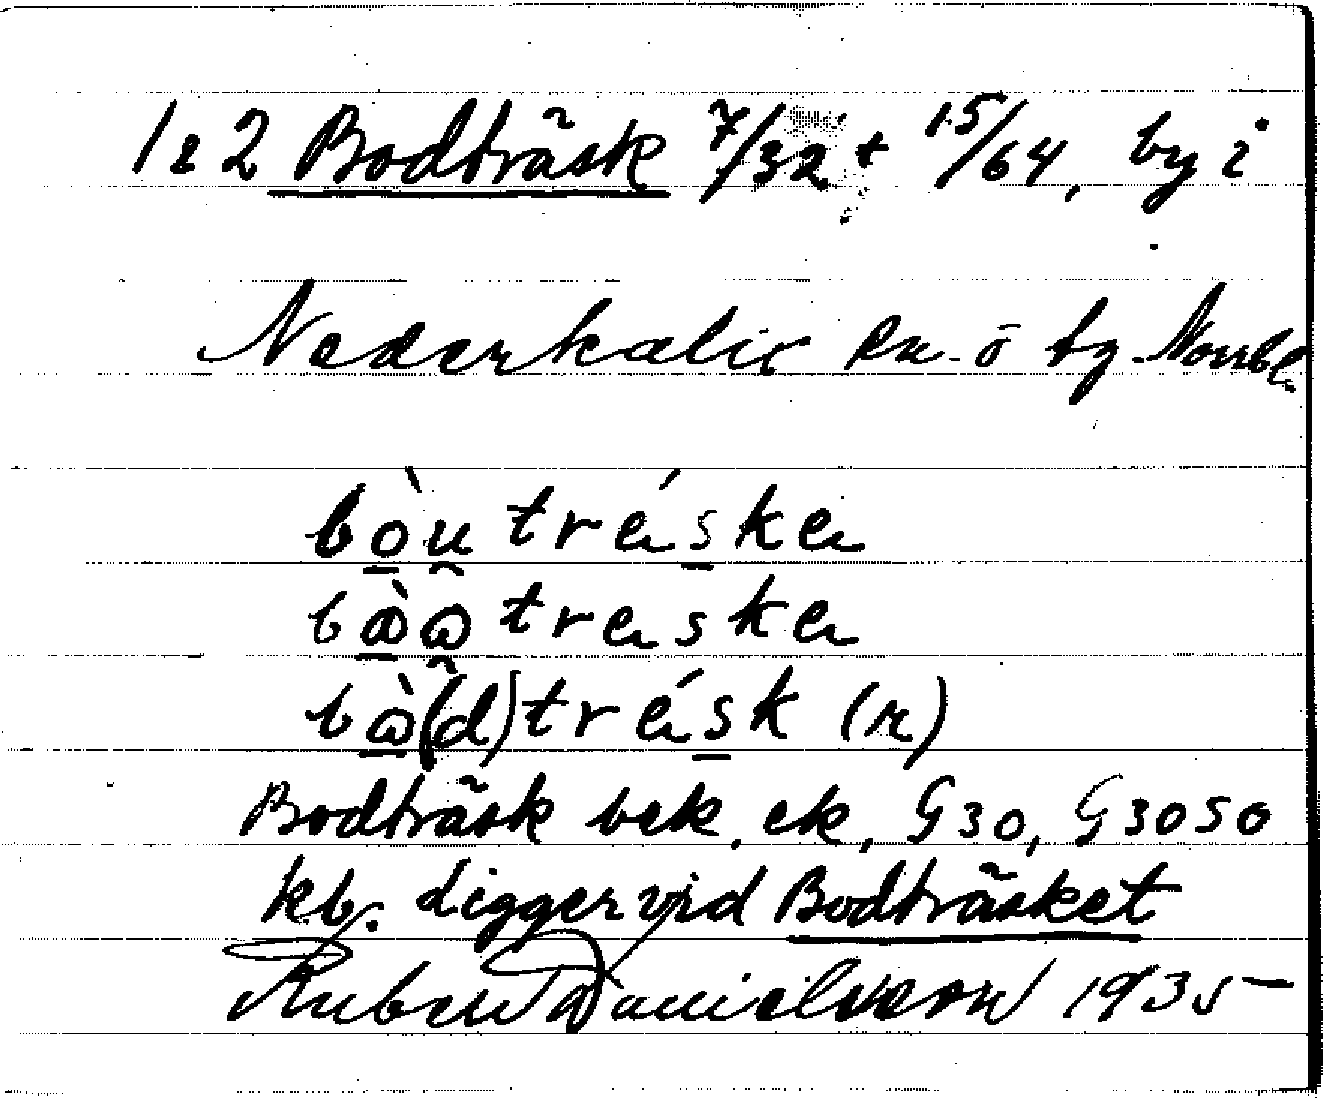 1 & 2 Bodträsk 7/32 + 15/64, by i
Nederkalix sn. o tg. Norrb.
bòu tréske
bòω treske
bὼ(d)trésk (n)
Bodträsk bek. ek, G30, G3050
kb. ligger vid Bodträsket
Ruben Danielsson 1935